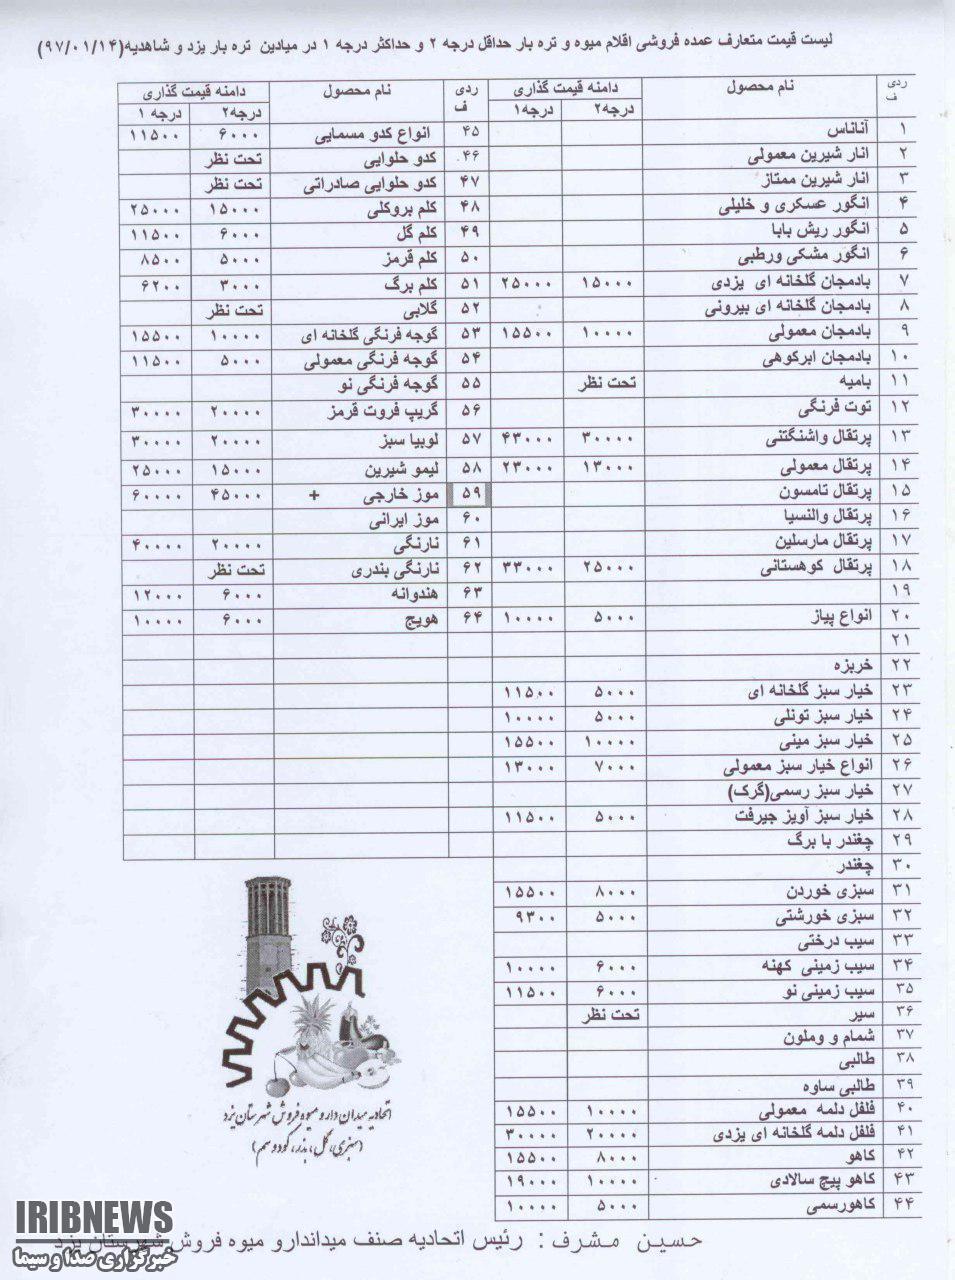 لیست قیمت متعارف عمده فروشی اقلام میوه و تره بار حداقل درجه ۲ و حداکثر درجه ۱ در میادین تره بار یزد و شاهدیه(۹۷/۰۱/۱۴)
ردی ف نام محصول دامنه قیمت گذاری
درجه۲ درجه۱
۱ آناناس
۲ انار شیرین معمولی
۳ انار شیرین ممتاز
۴ انگور عسکری و خلیلی
۵ انگور ریش بابا
۶ انگور مشکی ورطبی
۷ بادمجان گلخانه ای یزدی ۱۵۰۰۰ ۲۵۰۰۰
۸ بادمجان گلخانه ای بیرونی
۹ بادمجان معمولی ۱۰۰۰۰ ۱۵۵۰۰
۱۰ بادمجان ابرکوهی
۱۱ بامیه تحت نظر
۱۲ توت فرنگی
۱۳ پرتقال واشنگتنی ۳۰۰۰۰ ۴۳۰۰۰
۱۴ پرتقال معمولی ۱۳۰۰۰ ۲۳۰۰۰
۱۵ پرتقال تامسون
۱۶ پرتقال والنسیا
۱۷ پرتقال مارسلین
۱۸ پرتقال کوهستانی ۲۵۰۰۰ ۳۳۰۰۰
۱۹
۲۰ انواع پیاز ۵۰۰۰ ۱۰۰۰۰
۲۱
۲۲ خربزه
۲۳ خیار سبز گلخانه ای ۵۰۰۰ ۱۱۵۰۰
۲۴ خیار سبز تونلی ۵۰۰۰ ۱۰۰۰۰
۲۵ خیار سبز مینی ۱۰۰۰۰ ۱۵۵۰۰
۲۶ انواع خیار سبز معمولی ۷۰۰۰ ۱۳۰۰۰
۲۷ خیار سبز رسمی(گرک)
۲۸ خیار سبز آویز جیرفت ۵۰۰۰ ۱۱۵۰۰
۲۹ چغندر با برگ
۳۰ چغندر
۳۱ سبزی خوردن ۸۰۰۰ ۱۵۵۰۰
۳۲ سبزی خورشتی ۵۰۰۰ ۹۳۰۰
۳۳ سیب درختی
۳۴ سیب زمینی کهنه ۶۰۰۰ ۱۰۰۰۰
۳۵ سیب زمینی نو ۶۰۰۰ ۱۱۵۰۰
۳۶ سیر تحت نظر
۳۷ شمام و وملون
۳۸ طالبی
۳۹ طالبی ساوه
۴۰ فلفل دلمه معمولی ۱۰۰۰۰ ۱۵۵۰۰
۴۱ فلفل دلمه گلخانه ای یزدی ۲۰۰۰۰ ۳۰۰۰۰
۴۲ کاهو ۸۰۰۰ ۱۵۵۰۰
۴۳ کاهو پیچ سالادی ۱۰۰۰۰ ۱۹۰۰۰
۴۴ کاهورسمی ۵۰۰۰ ۱۰۰۰۰
ردی ف نام محصول دامنه قیمت گذاری
درجه۲ درجه ۱
۴۵ انواع کدو مسمایی ۶۰۰۰ ۱۱۵۰۰
۴۶ کدو حلوایی تحت نظر
۴۷ کدو حلوایی صادراتی تحت نظر
۴۸ کلم بروکلی ۱۵۰۰۰ ۲۵۰۰۰
۴۹ کلم گل ۶۰۰۰ ۱۱۵۰۰
۵۰ کلم قرمز ۵۰۰۰ ۸۵۰۰
۵۱ کلم برگ ۳۰۰۰ ۶۲۰۰
۵۲ گلابی تحت نظر
۵۳ گوجه فرنگی گلخانه ای ۱۰۰۰۰ ۱۵۵۰۰
۵۴ گوجه فرنگی معمولی ۵۰۰۰ ۱۱۵۰۰
۵۵ گوجه فرنگی نو
۵۶ گریپ فروت قرمز ۲۰۰۰۰ ۳۰۰۰۰
۵۷ لوبیا سبز ۲۰۰۰۰ ۳۰۰۰۰
۵۸ لیمو شیرین ۱۵۰۰۰ ۲۵۰۰۰
۵۹ موز خارجی + ۴۵۰۰۰ ۶۰۰۰۰
۶۰ موز ایرانی
۶۱ نارنگی ۲۰۰۰۰ ۴۰۰۰۰
۶۲ نارنگی بندری تحت نظر
۶۳ هندوانه ۶۰۰۰ ۱۲۰۰۰
۶۴ هویج ۶۰۰۰ ۱۰۰۰۰
اتحادیه میدان دار و میوه فروش شهرستان یزد
(سبزی، گل، بذر، کود و سم)
حسین مشرف : رئیس اتحادیه صنف میداندارو میوه فروش شهرستان یزد
IRIBNEWS
خبرگزاری صدا و سیما